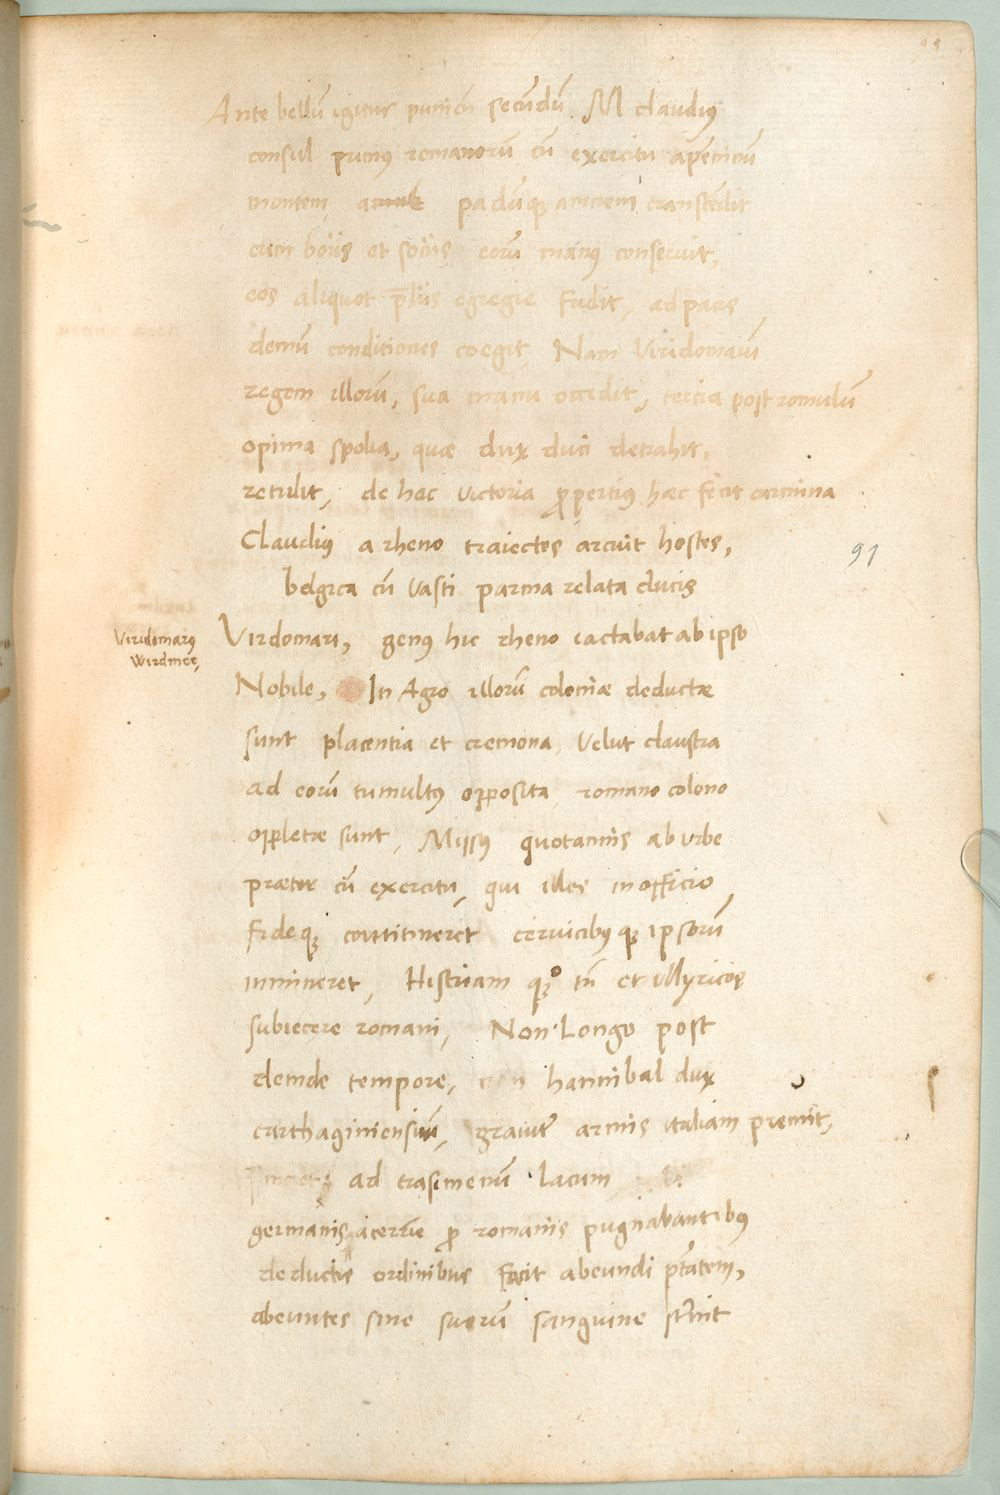 91
Ante bellū igitur punicū secūdū M claudiꝰ
consul primꝰ romanorū cū exercitu apēninū
montem padūqꝫ amnem trānscēdit
cum boiis et sociis eorū manꝰ conseruit,
eos aliquot p̄liis egregie fudit, ad pacis
demū conditiones coegit, Nam Viridomarū
regem illorū, sua manu occidit, tercia post romulū
opima spolia, quae dux duci detrahit,
retulit, de hac victoria ꝓpertius haec fecit carmina
Claudiꝰ a rheno traiectos arcuit hostes,
91
belgica cū vasti parma relata ducis
Viridomarꝰ
Wirdmer,
Virdomari, genꝰ hic rheno iactabat ab ipso
Nobile, In Agro illorū coloniae deductae
sunt placentia et cremona, Velut claustra
ad eorū tumultꝰ opposita romano colono
oppletae sunt, Missꝰ quotannis ab vrbe
praetor cū exercitu, qui illos in officio
fideqꝫ contineret ceruicibꝰqꝫ ipsorū
immineret, Histriam qꝫ tn̄ et illyricos
subiecere romani, Non Longo post
deinde tempore, hannibal dux
carthaginiensiū, grauiter armis italiam premit,
ad trasimenū lacum
germanis acerrime ꝓ romanis pugnabantibꝰ
deductis ordinibus facit abeundi p̄tatem,
abeuntes sine suorū sanguine